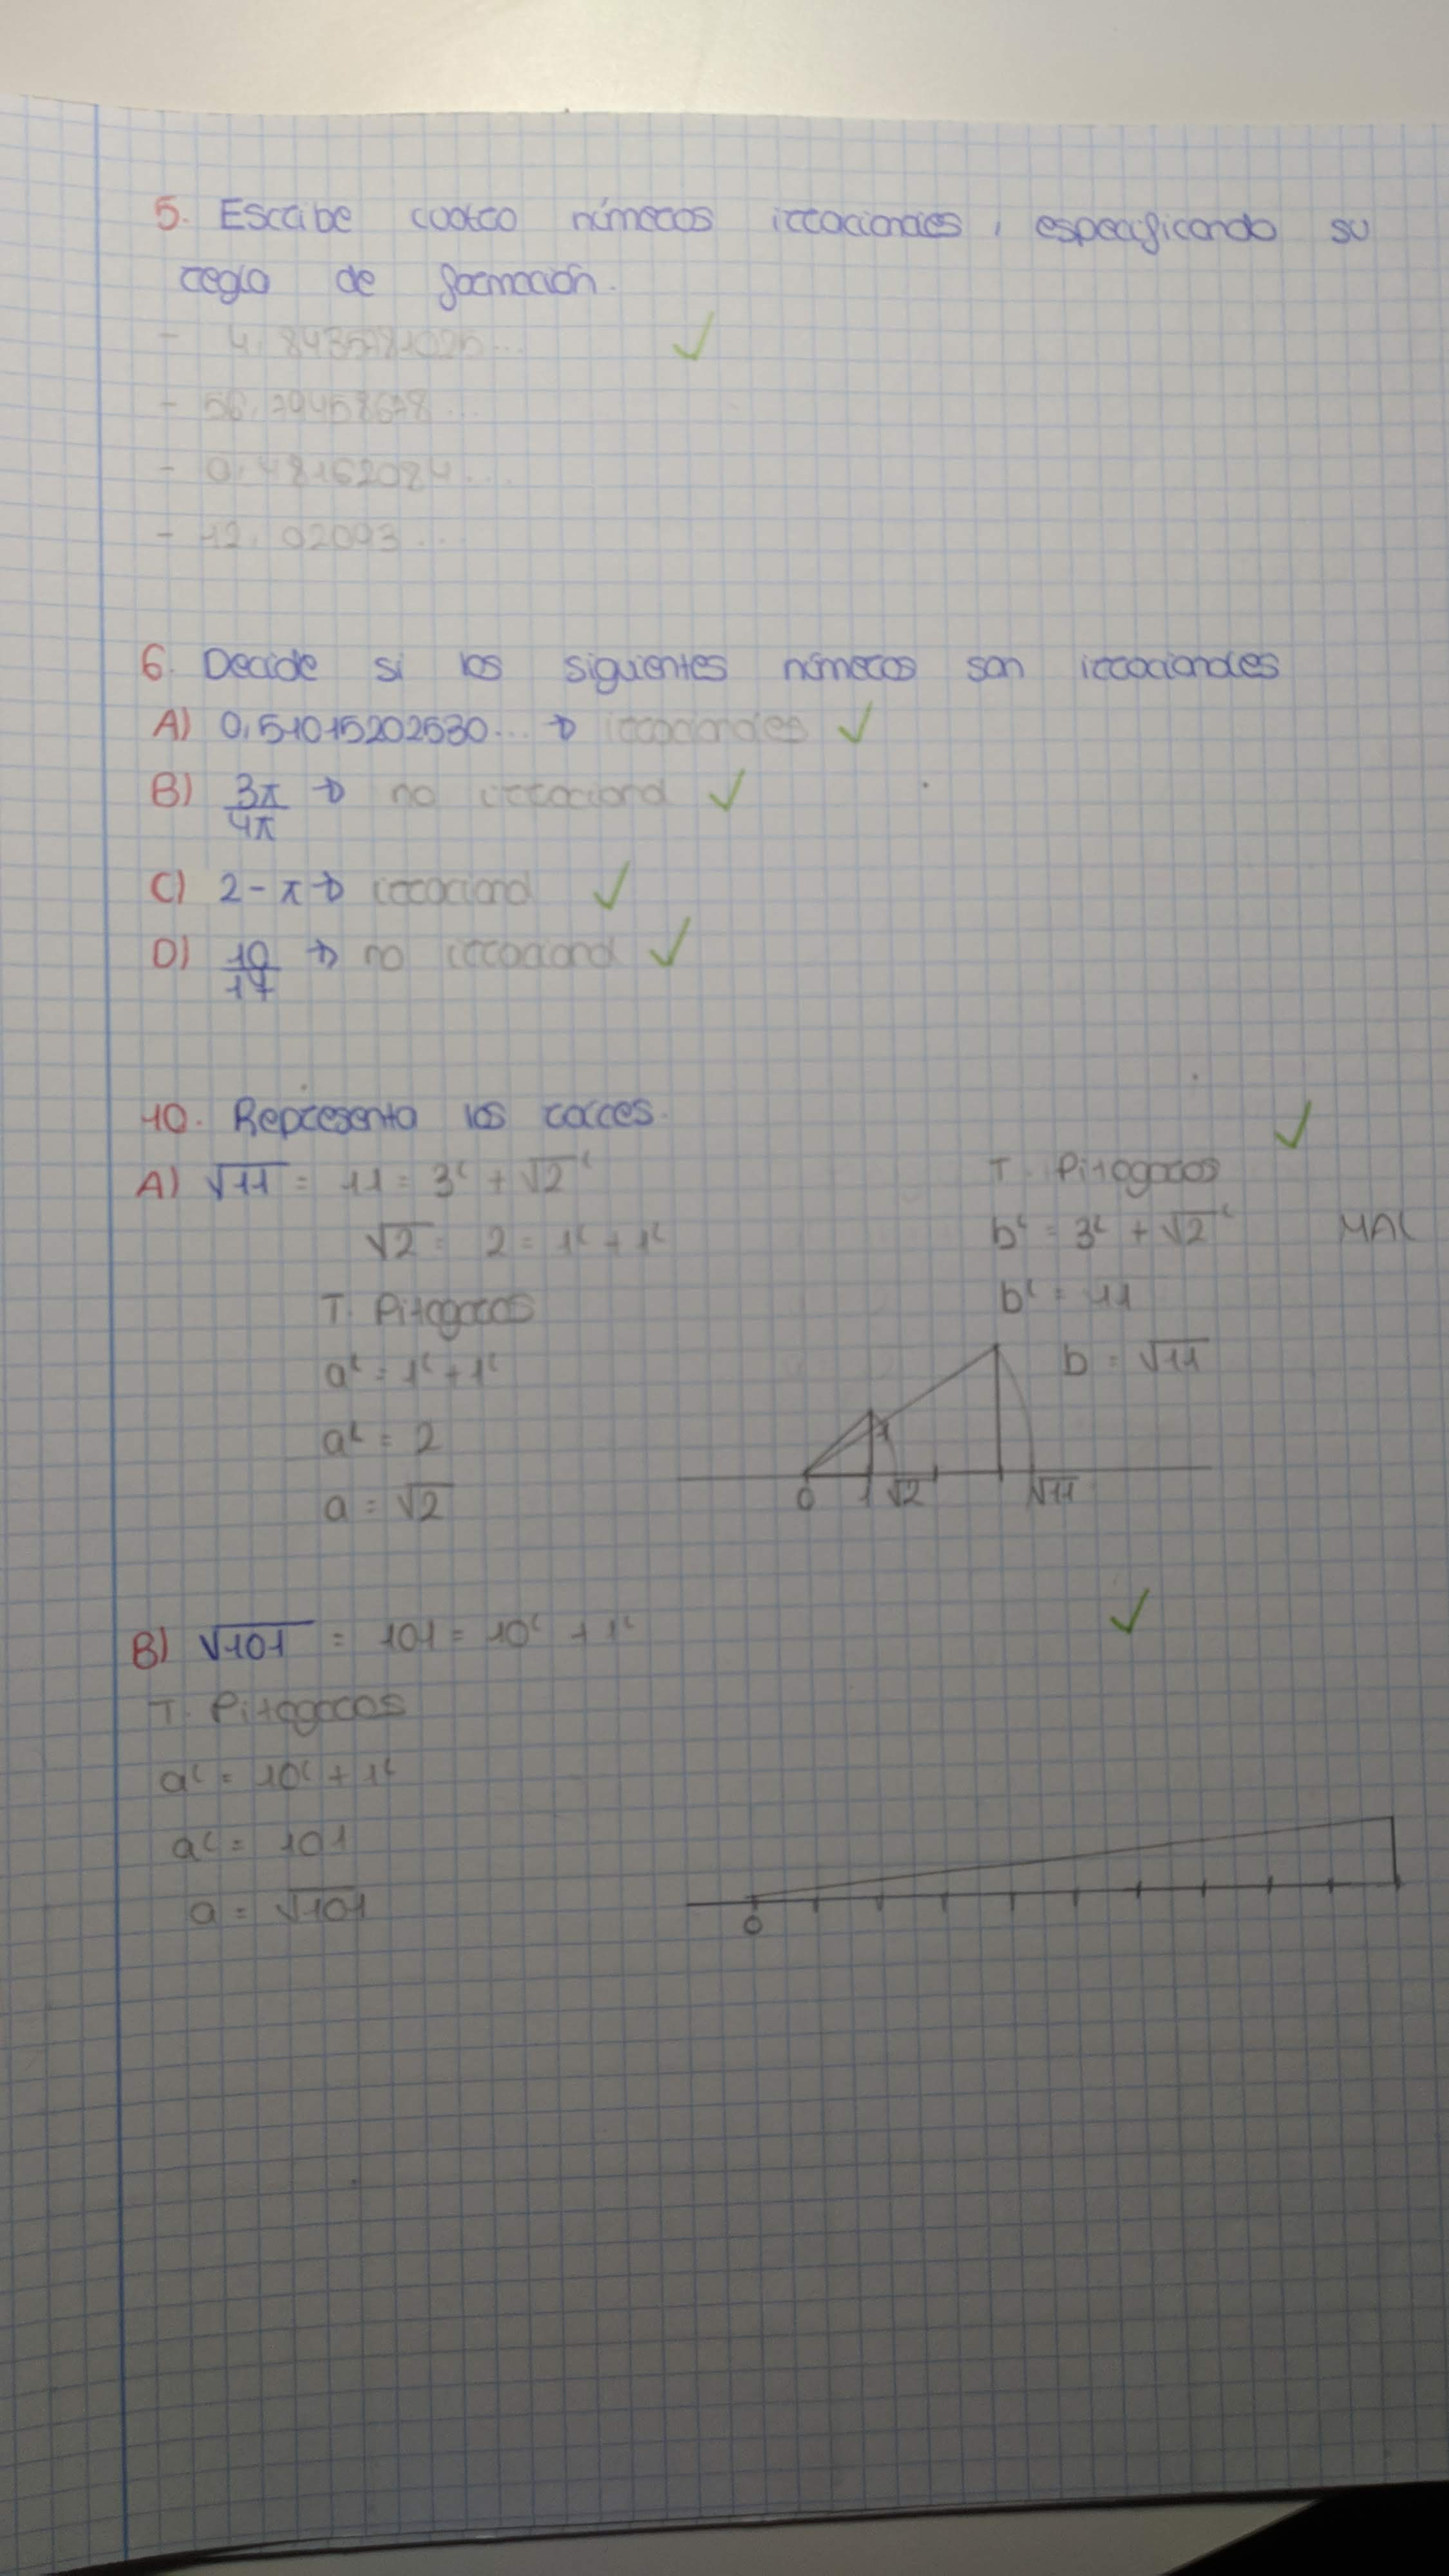 5. Escribe cuatro números irracionales, especificando su
regla de formación.
- 4,8435781025...
- 56,79458678...
- 0,48162084...
- 12,02093...
6. Decide si los siguientes números son irracionales
A) 0,51015202530... → irracionales
B) 3π/4π → no irracional
C) 2-π → irracional
D) 10/17 → no irracional
10. Representa las raíces.
A) √11 = 11 = 3² + √2²
√2 = 2 = 1² + 1²
T. Pitagoras
a² = 1² + 1²
a² = 2
a = √2
T. Pitagoras
b² = 3² + √2²
b² = 11
b = √11
MAL
1
0 1 √2 √11
B) √101 = 101 = 10² + 1²
T. Pitagoras
a² = 10² + 1²
a² = 101
a = √101
0